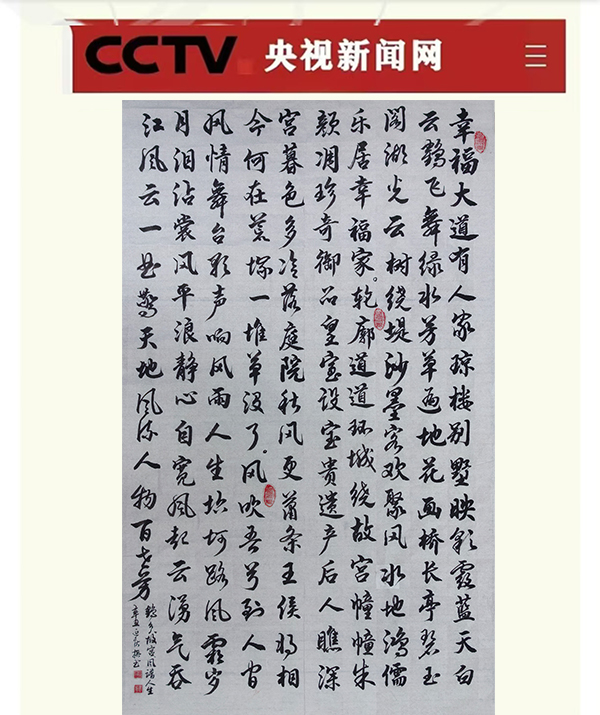 CCTV 央视新闻网
幸福大道有人家琼楼别墅映彩霞蓝天白
云鹤飞舞绿水芳草遍地花画桥长亭碧玉
阁湖光云树绕堤沙墨客欢聚风水地鸿儒
乐居幸福家。乾廓道道环城绕故宫幢幢朱
颜凋珍奇御品皇室设宝贵遗产后人瞧深
宫暮色多冷落庭院秋风更萧条王侯将相
今何在荒塚一堆草没了。风吹吾兮到人
风情舞台影声响风雨人生坎坷路风霜岁
月泪沾裳风平浪静心自宽风起云涌气吞
江风云一曲惊天地风流人物百世芳